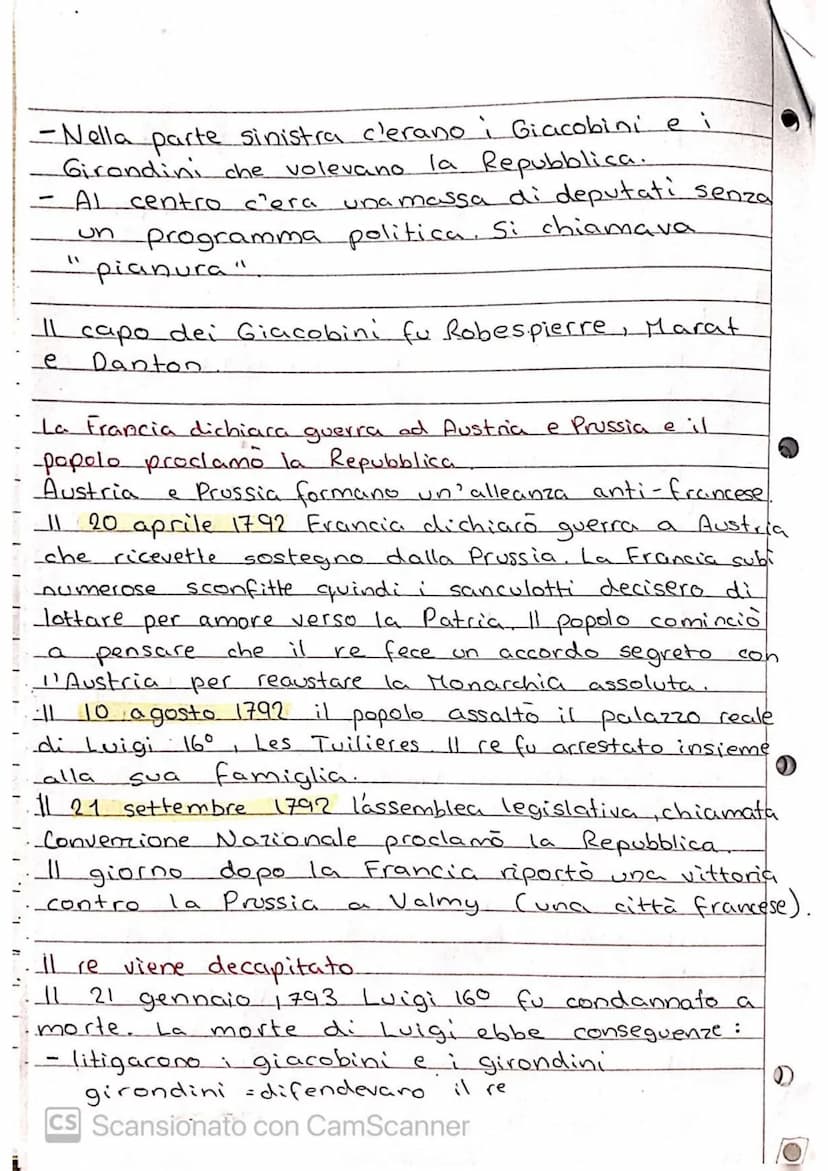 - Nella parte sinistra c'erano i Giacobini e i
Girondini che volevano la Repubblica.
- Al centro c'era una massa di deputati senza
un programma politica. Si chiamava
"pianura".
Il capo dei Giacobini fu Robespierre, Marat
e Danton.
La Francia dichiara guerra ad Austria e Prussia e il
popolo proclamò la Repubblica
Austria e Prussia formano un'alleanza anti-francese.
Il 20 aprile 1792 Francia dichiarò guerra a Austria
che ricevette sostegno dalla Prussia. La Francia subì
numerose sconfitte quindi i sanculotti decisero di
lottare per amore verso la Patria. Il popolo cominciò
a pensare che il re fece un accordo segreto con
l'Austria per reaustare la Monarchia assoluta.
Il 10 agosto 1792 il popolo assaltò il palazzo reale
di Luigi 16°, Les Tuilieres. Il re fu arrestato insieme
alla sua famiglia.
Il 21 settembre 1792 l'assemblea legislativa, chiamata
Convenzione Nazionale proclamò la Repubblica.
Il giorno dopo la Francia riportò una vittoria
contro la Prussia a Valmy (una città francese).
Il re viene decapitato
Il 21 gennaio 1793 Luigi 16° fu condannato a
morte. La morte di Luigi ebbe conseguenze:
- litigarono i giacobini e i girondini
girondini = difendevano il re
CS Scansionato con CamScanner